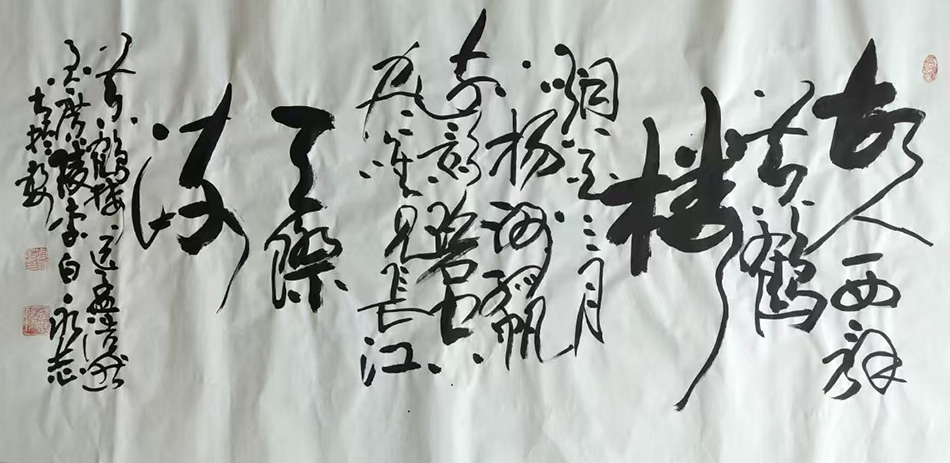 故人西辞
黄鹤
楼
烟花三月
下扬州孤帆
远影碧空
尽唯见长江
天际
流
黄鹤楼送孟浩然
之广陵李白永志